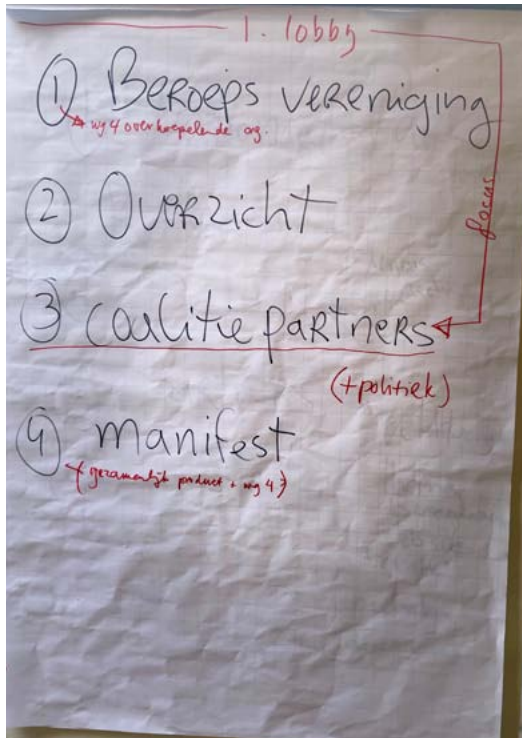 1. lobby
① Beroeps vereniging
wg 4 overkoepelende org.
② Overzicht
focus
③ coalitie partners
(+politiek)
④ manifest
(gezamenlijk product + wg 4)